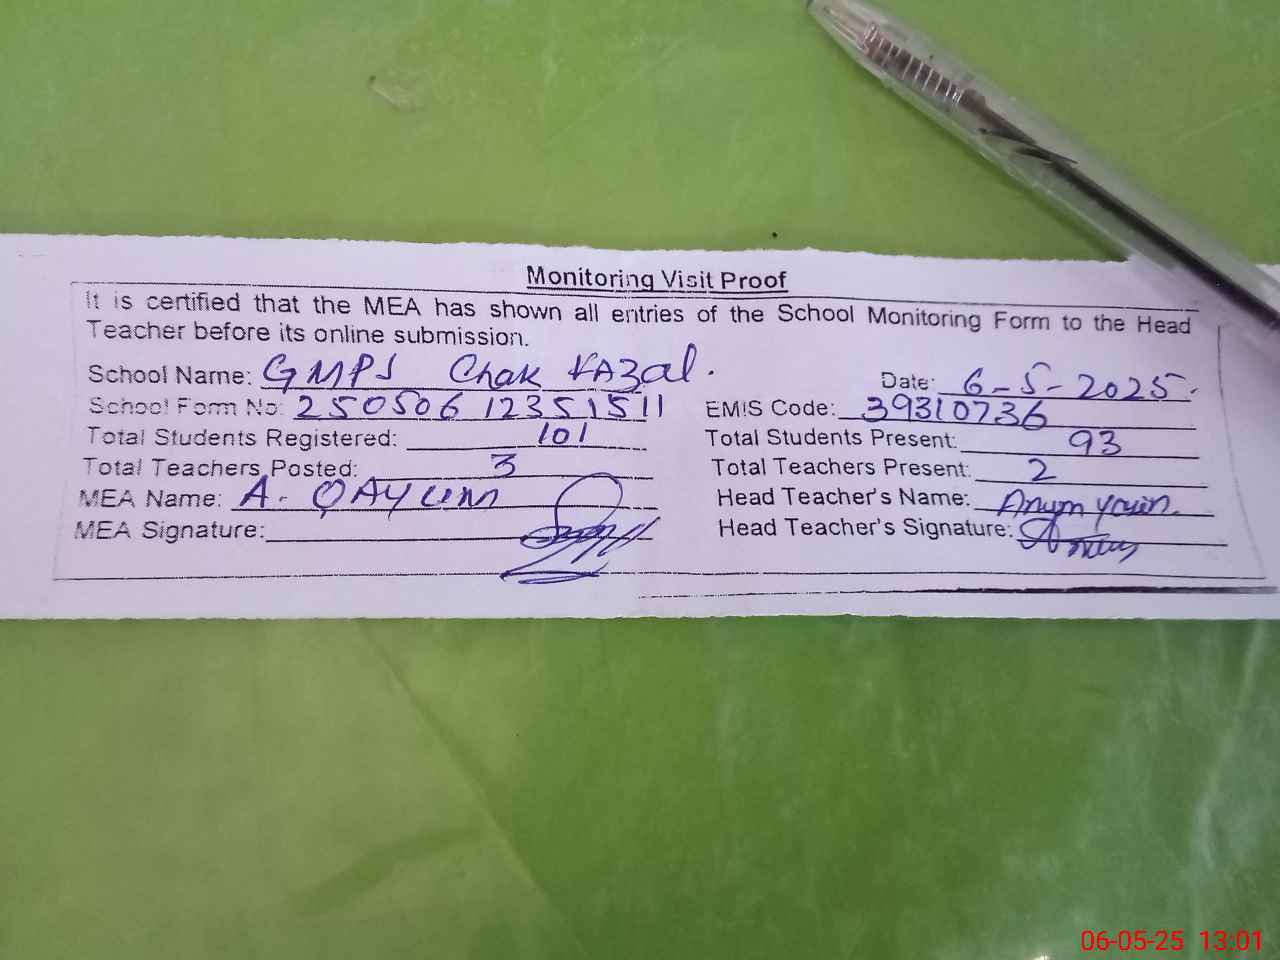 Monitoring Visit Proof
It is certified that the MEA has shown all entries of the School Monitoring Form to the Head
Teacher before its online submission.
School Name: GMPS Chak Fazal. Date: 6-5-2025.
School Form No: 250506 12351511 EMIS Code: 39310736
Total Students Registered: 101 Total Students Present: 93
Total Teachers Posted: 3 Total Teachers Present: 2
MEA Name: A. QAYUM Head Teacher's Name: Anum
MEA Signature: Head Teacher's Signature:
06-05-25 13:01